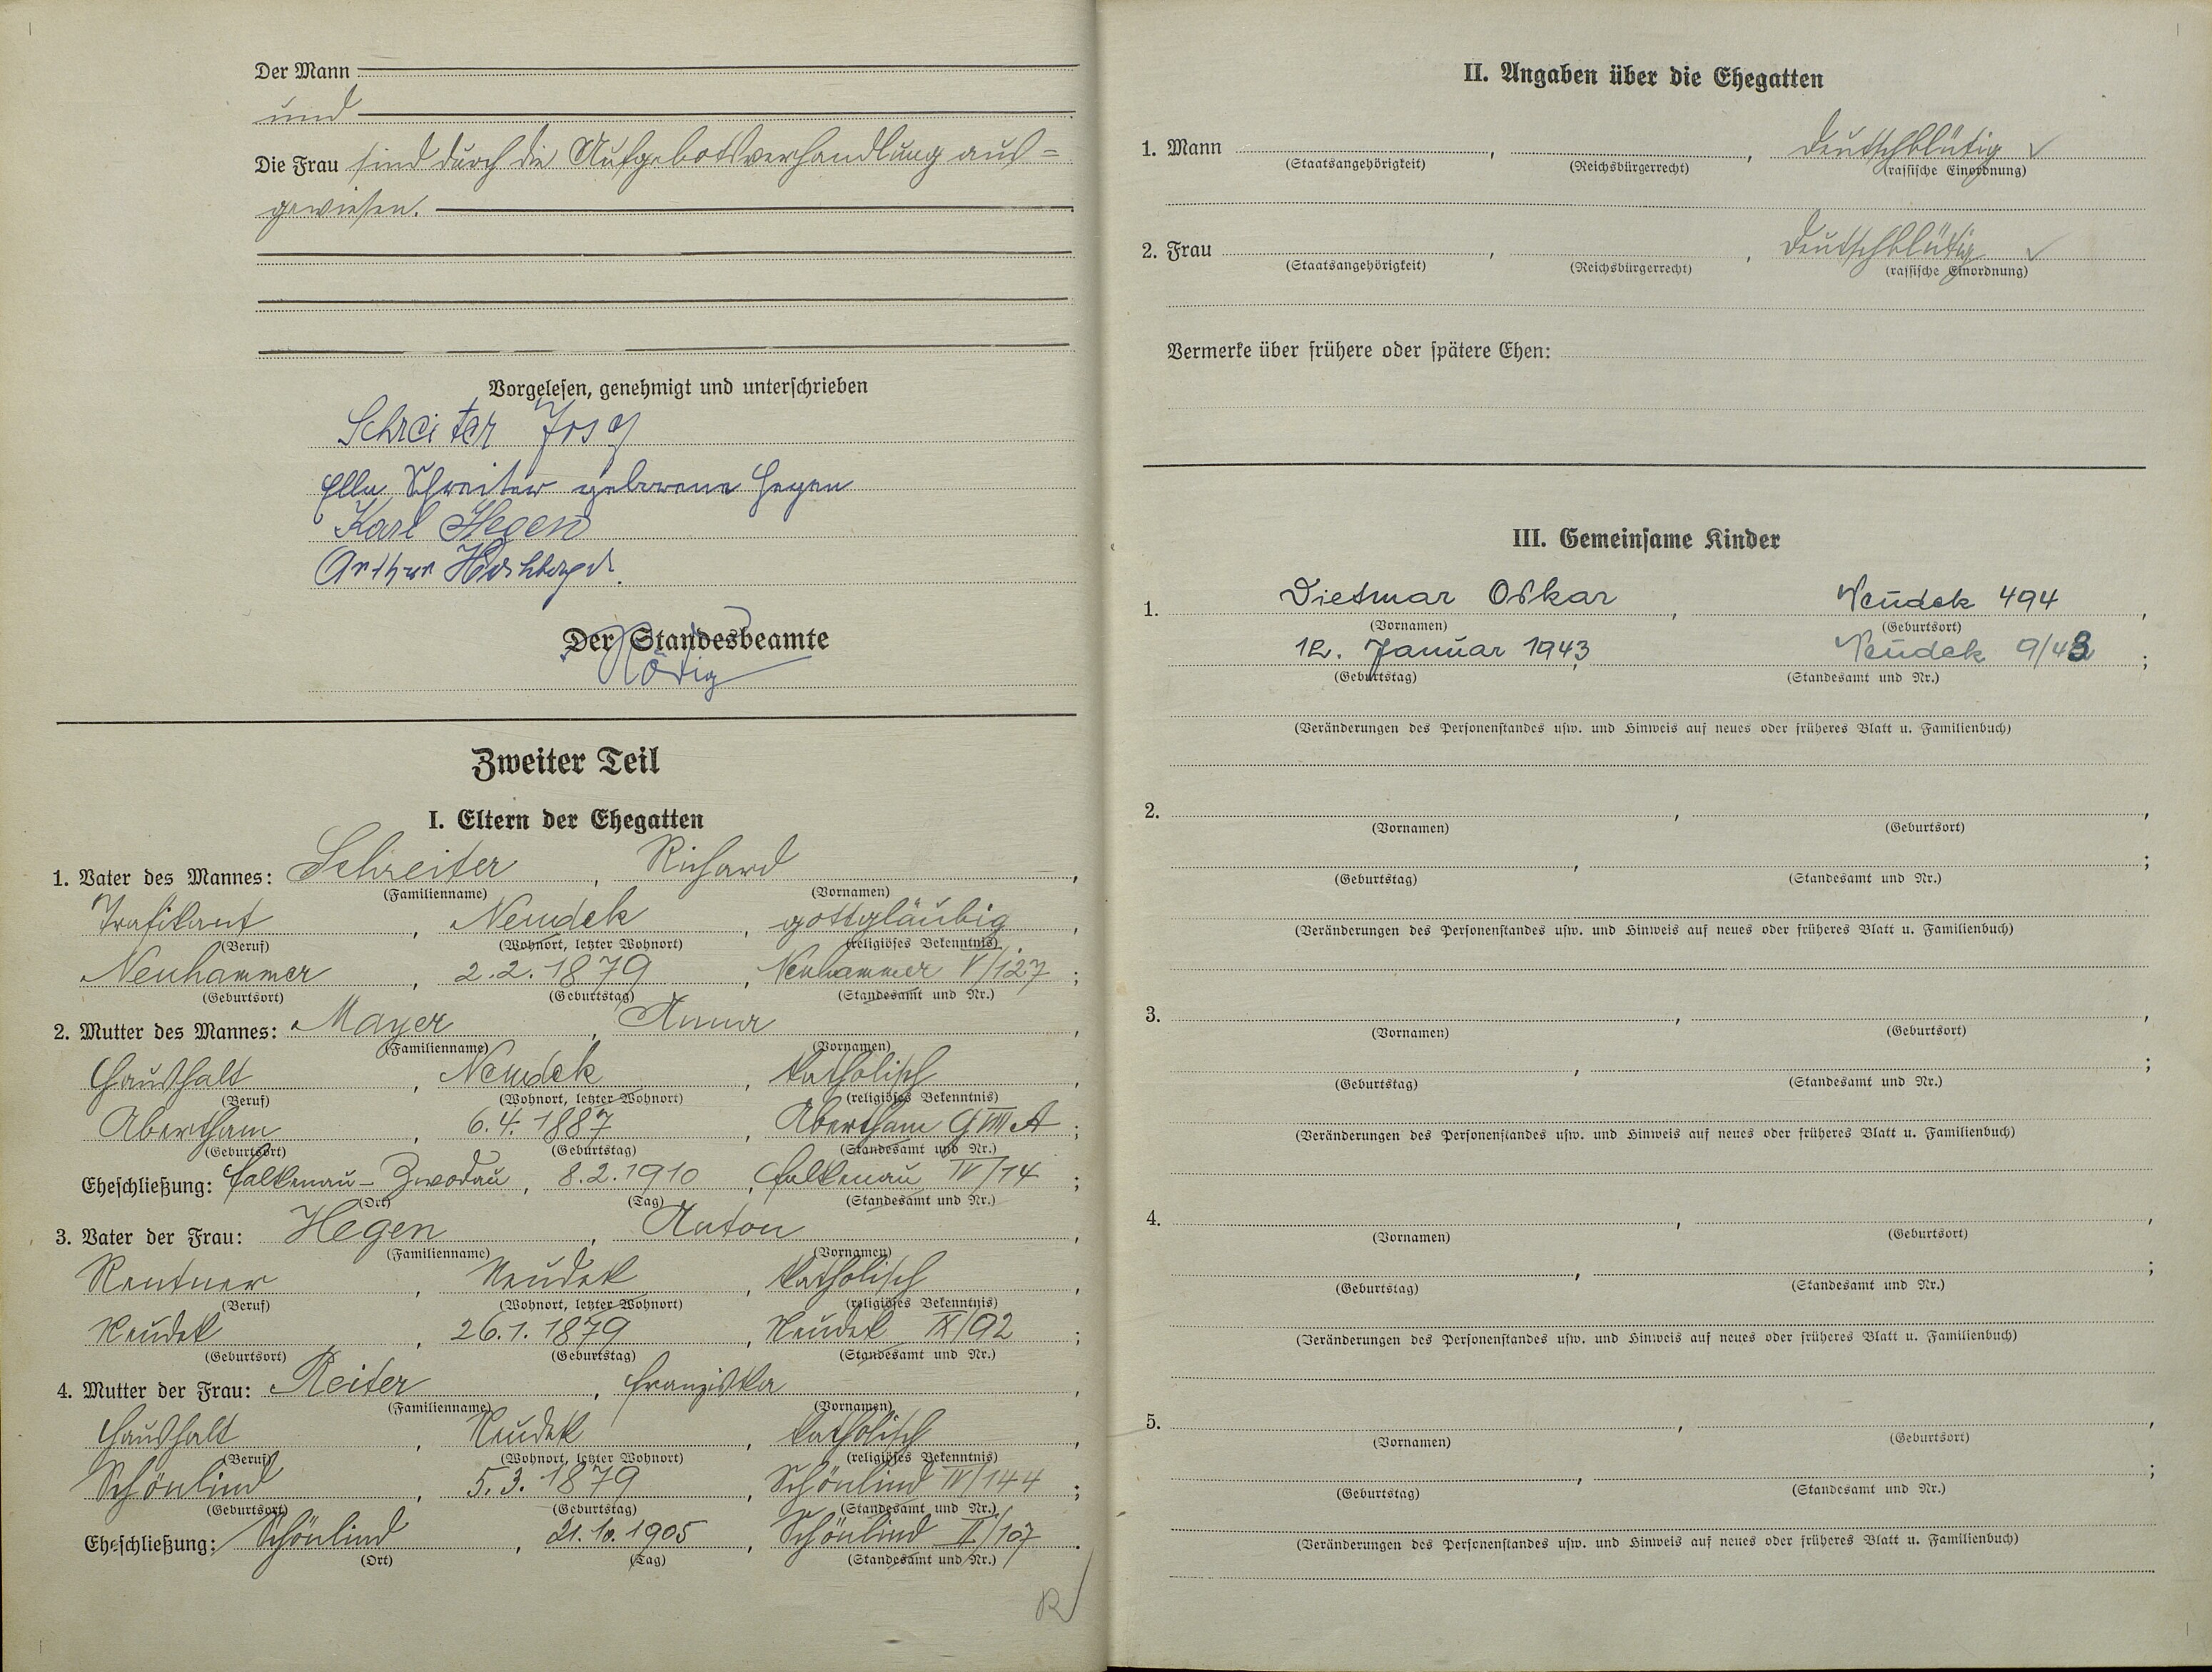 Der Mann
und
Die Frau sind durch die Aufgebotsverhandlung aus=
gewiesen.
Vorgelesen, genehmigt und unterschrieben
Schreiter Josef
Ella Schreiter geborene Hegen
Karl Hegen
Arthur
Der Standesbeamte
Zweiter Teil
I. Eltern der Ehegatten
1. Vater des Mannes: Schreiter, Richard,
(Familienname) (Vornamen)
Trafikant, Neudek, gottgläubig,
(Beruf) (Wohnort, letzter Wohnort) (religiöses Bekenntnis)
Neuhammer, 2.2.1879, Neuhammer V/127;
(Geburtsort) (Geburtstag) (Standesamt und Nr.)
2. Mutter des Mannes: Mayer, Anna,
(Familienname) (Vornamen)
Haushalt, Neudek, katholisch,
(Beruf) (Wohnort, letzter Wohnort) (religiöses Bekenntnis)
Abertham, 6.4.1887, Abertham G VIII A;
(Geburtsort) (Geburtstag) (Standesamt und Nr.)
Eheschließung: Falkenau-Zwodau, 8.2.1910, Falkenau IV/14;
(Ort) (Tag) (Standesamt und Nr.)
3. Vater der Frau: Hegen, Anton,
(Familienname) (Vornamen)
Rentner, Neudek, katholisch,
(Beruf) (Wohnort, letzter Wohnort) (religiöses Bekenntnis)
Neudek, 26.1.1879, Neudek IX/92;
(Geburtsort) (Geburtstag) (Standesamt und Nr.)
4. Mutter der Frau: Reiter, Franziska,
(Familienname) (Vornamen)
Haushalt, Neudek, katholisch,
(Beruf) (Wohnort, letzter Wohnort) (religiöses Bekenntnis)
Schönlind, 5.3.1879, Schönlind IV/144;
(Geburtsort) (Geburtstag) (Standesamt und Nr.)
Eheschließung: Schönlind, 21.10.1905, Schönlind II/107.
(Ort) (Tag) (Standesamt und Nr.)
R
II. Angaben über die Ehegatten
1. Mann , , deutschblütig ✓
(Staatsangehörigkeit) (Reichsbürgerrecht) (rassische Einordnung)
2. Frau , , deutschblütig ✓
(Staatsangehörigkeit) (Reichsbürgerrecht) (rassische Einordnung)
Vermerke über frühere oder spätere Ehen:
III. Gemeinsame Kinder
1. Dietmar Oskar, Neudek 494,
(Vornamen) (Geburtsort)
12. Januar 1943, Neudek 9/43;
(Geburtstag) (Standesamt und Nr.)
(Veränderungen des Personenstandes usw. und Hinweis auf neues oder früheres Blatt u. Familienbuch)
2. , ,
(Vornamen) (Geburtsort)
, ;
(Geburtstag) (Standesamt und Nr.)
(Veränderungen des Personenstandes usw. und Hinweis auf neues oder früheres Blatt u. Familienbuch)
3. , ,
(Vornamen) (Geburtsort)
, ;
(Geburtstag) (Standesamt und Nr.)
(Veränderungen des Personenstandes usw. und Hinweis auf neues oder früheres Blatt u. Familienbuch)
4. , ,
(Vornamen) (Geburtsort)
, ;
(Geburtstag) (Standesamt und Nr.)
(Veränderungen des Personenstandes usw. und Hinweis auf neues oder früheres Blatt u. Familienbuch)
5. , ,
(Vornamen) (Geburtsort)
, ;
(Geburtstag) (Standesamt und Nr.)
(Veränderungen des Personenstandes usw. und Hinweis auf neues oder früheres Blatt u. Familienbuch)